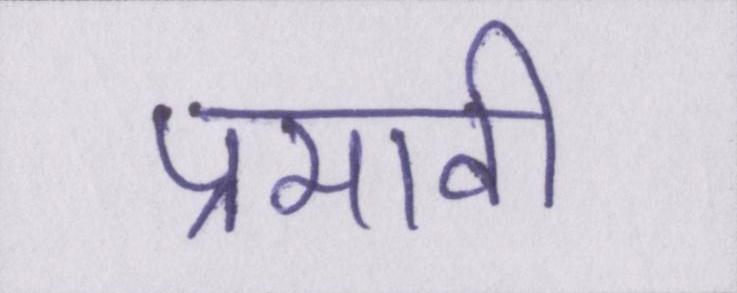 प्रभावी